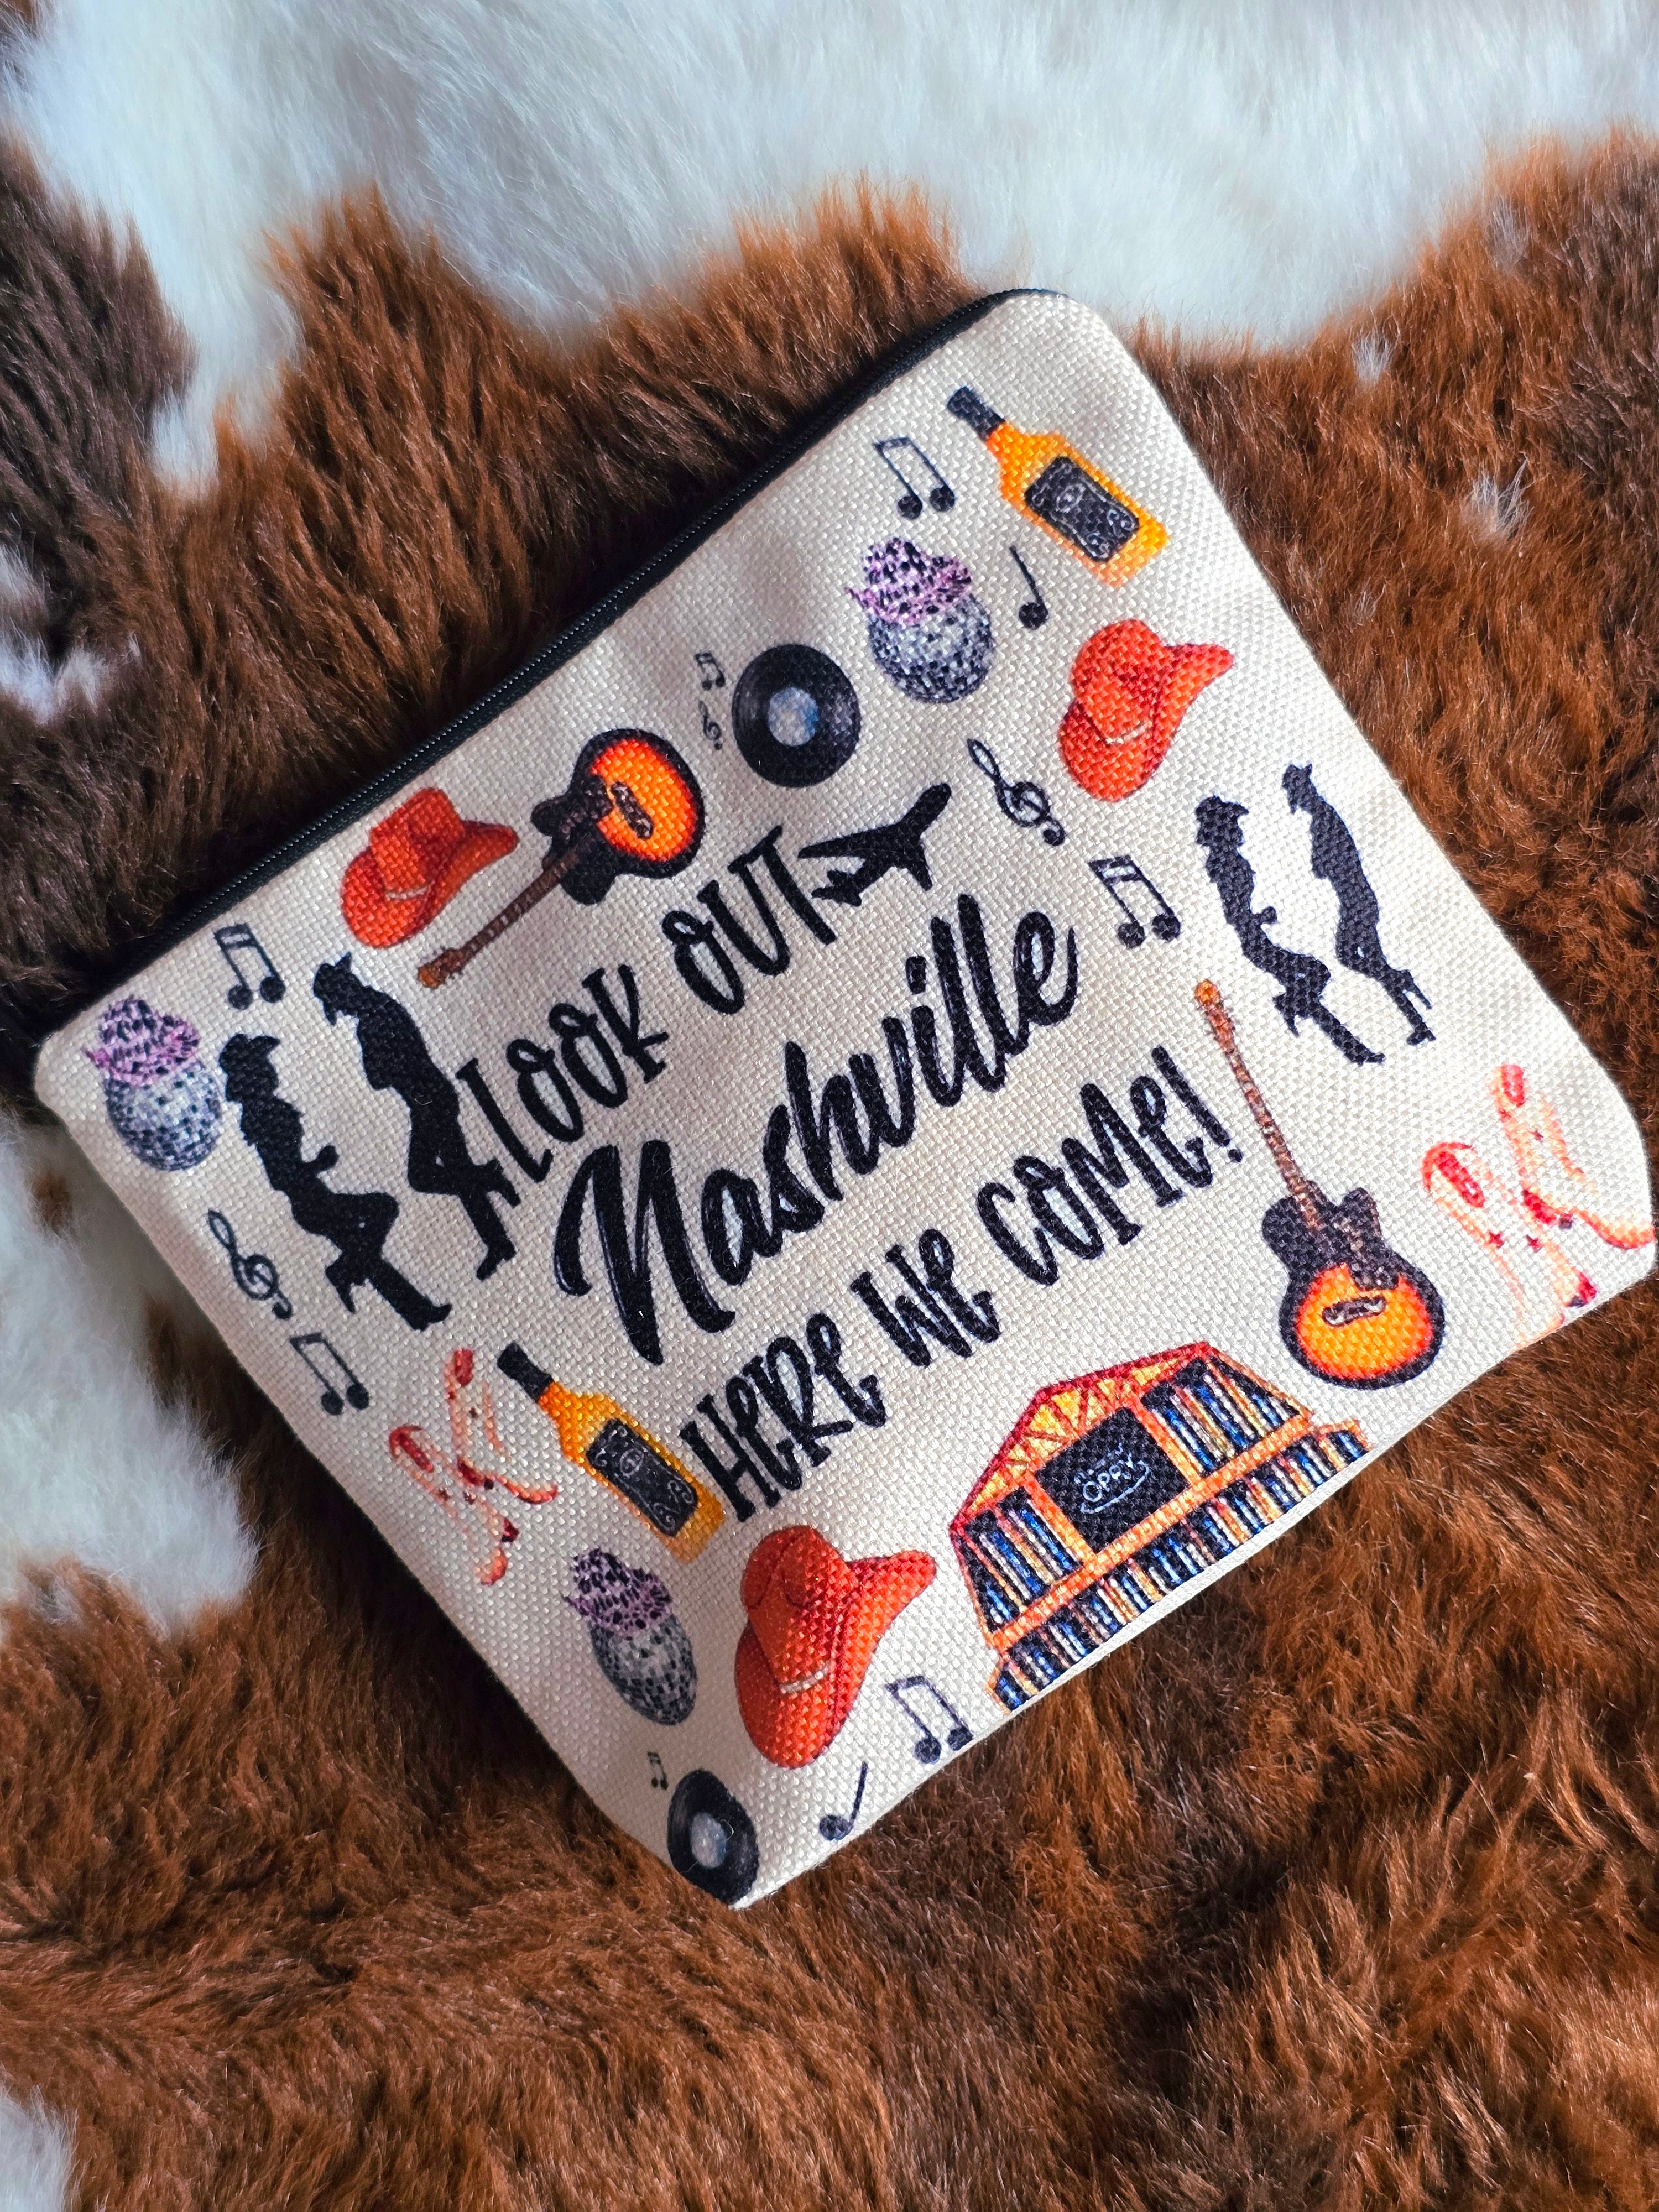 LOOK OUT
Nashville
HERE WE COME!
OPRY